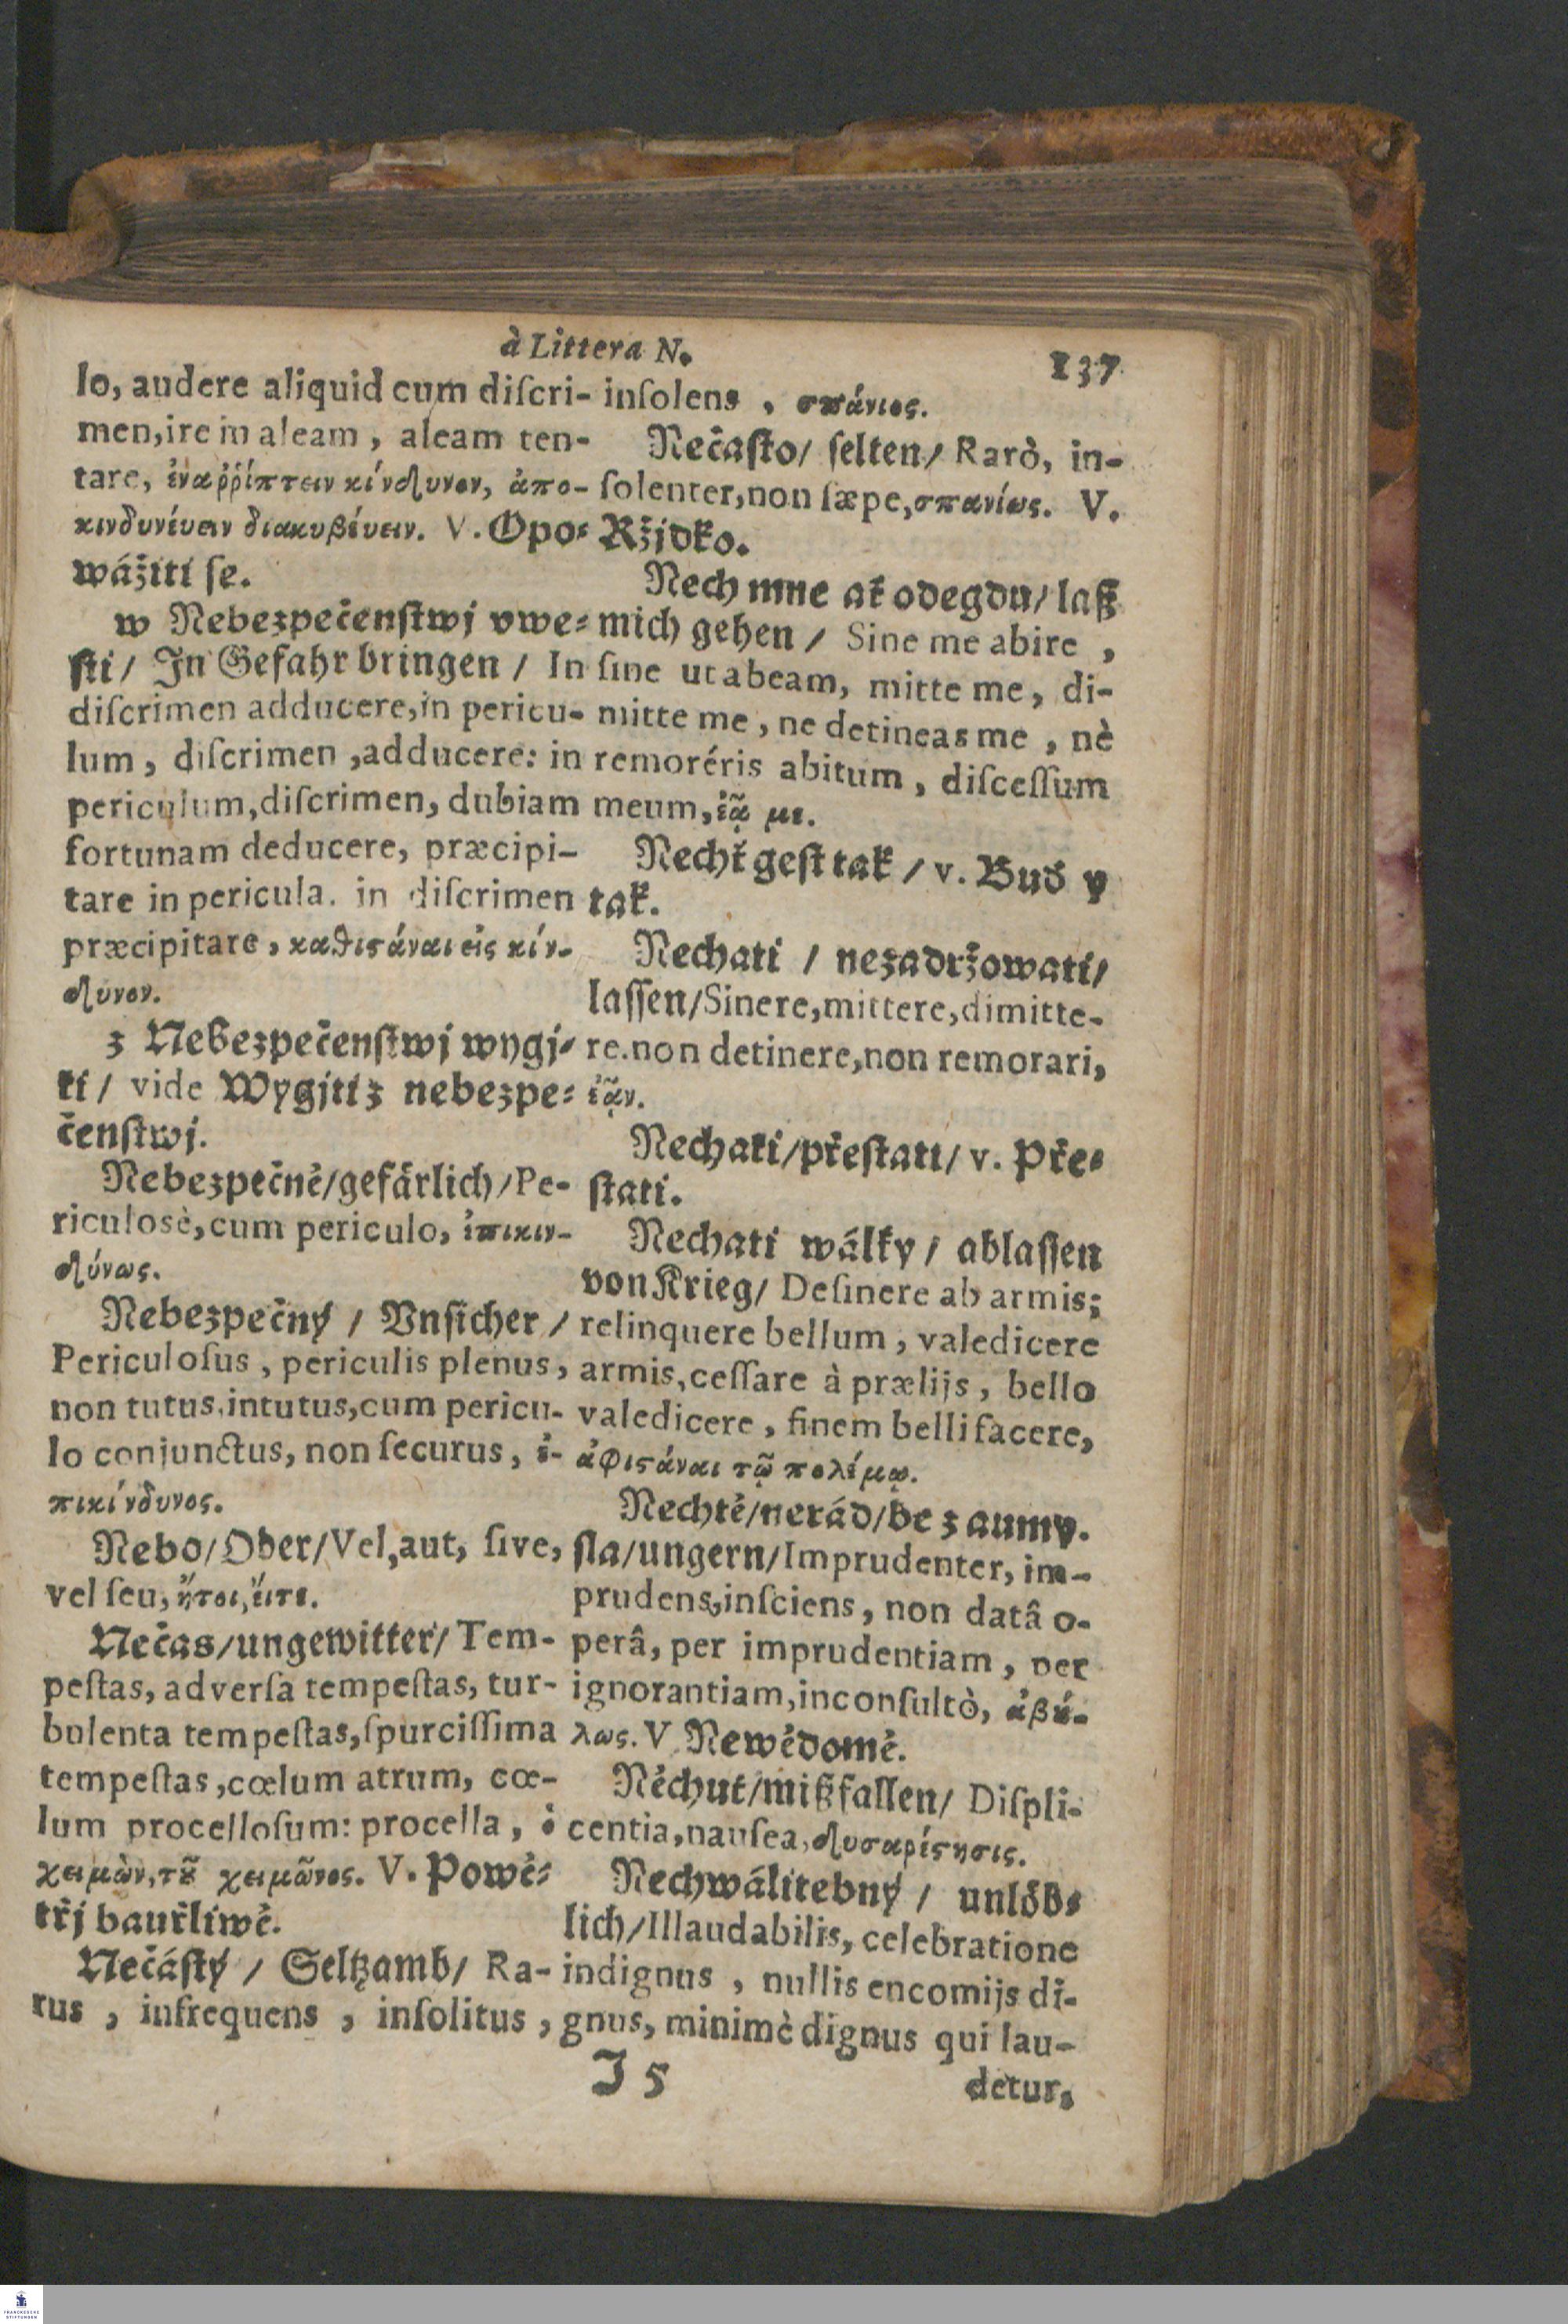 à Littera N.
137
lo, audere aliquid cum diſcri-
men, ire in aleam, aleam ten-
tare, ἐναῤῥίπτειν κίνδυνον, ἀπο-
κινδυνέυειν διακυβέυειν. V. Opo⸗
wážiti ſe.
w Nebezpečenſtwj vwe⸗
ſti/ In Gefahr bringen / In
diſcrimen adducere, in pericu-
lum, diſcrimen, adducere: in
periculum, diſcrimen, dubiam
fortunam deducere, præcipi-
tare in pericula. in diſcrimen
præcipitare, καθιϛάναι εἰς κίν-
δυνον.
z Nebezpečenſtwj wygj⸗
ti/ vide Wygjti z nebezpe⸗
čenſtwj.
Nebezpečně/gefärlich/Pe-
riculosè, cum periculo, ἐπικιν-
δύνως.
Nebezpečný / Vnſicher /
Periculoſus, periculis plenus,
non tutus. intutus, cum pericu-
lo conjunctus, non ſecurus, ἐ-
πικίνδυνος.
Nebo/Oder/Vel, aut, ſive,
vel ſeu, ἤτοι, ἔιτε.
Nečas/ungewitter/ Tem-
peſtas, adverſa tempeſtas, tur-
bulenta tempeſtas, ſpurciſſima
tempeſtas, cœlum atrum, cœ-
lum procelloſum: procella, ὁ
χειμὼν, τȣ͂ χειμῶνος. V. Powě⸗
třj bauřliwé.
Nečáſtý / Seltzamb/ Ra-
rus, infrequens, inſolitus,
inſolens, σπάνιος.
Nečaſto/ ſelten/ Rarò, in-
ſolenter, non ſæpe, σπανίως. V.
Ržjdko.
Nech mne ať odegdu/ laß
mich gehen / Sine me abire,
ſine ut abeam, mitte me, di-
mitte me, ne detineas me, nè
remoréris abitum, diſceſſum
meum, ἐᾷ με.
Nechť geſt tak / v. Buď y
tak.
Nechati / nezadržowati/
laſſen/Sinere, mittere, dimitte-
re. non detinere, non remorari,
ἐᾷν.
Nechati/přeſtati/ v. Pře⸗
ſtati.
Nechati wálky / ablaſſen
von Krieg/ Deſinere ab armis;
relinquere bellum, valedicere
armis, ceſſare à prælijs, bello
valedicere, finem belli facere,
ἀφιϛάναι τῷ πολέμῳ.
Nechtě/nerád/bezaumy.
ſla/ungern/Imprudenter, im-
prudens, inſciens, non datâ o-
perâ, per imprudentiam, per
ignorantiam, inconſultò, ἀβȣ́-
λως. V Newědomě.
Něchut/mißfallen/ Diſpli-
centia, nauſea, δυσαρέϛησις.
Nechwálitebný / unlöb⸗
lich/Illaudabilis, celebratione
indignus, nullis encomijs di-
gnus, minimè dignus qui lau-
I 5
detur,